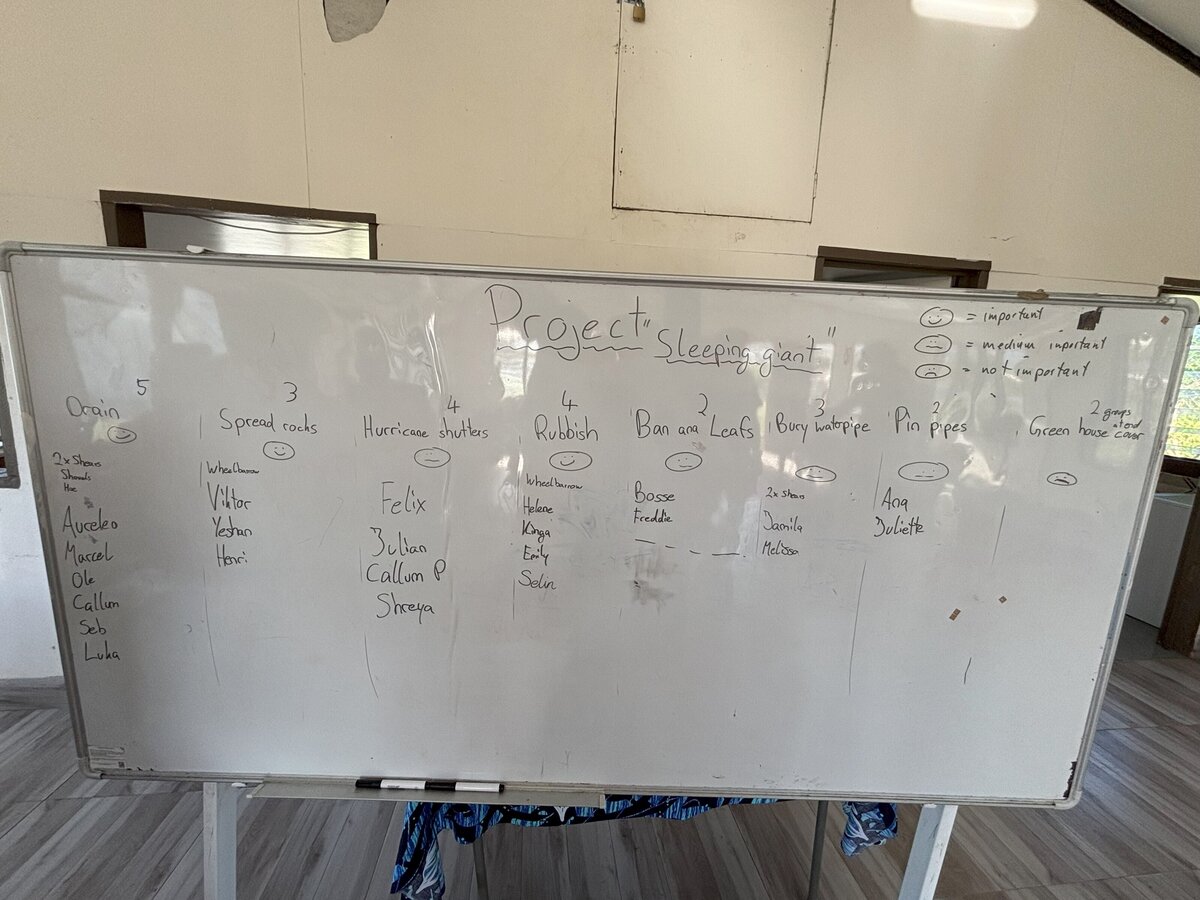 Project "Sleeping giant"
= important
= medium important
= not important
5
Drain
2x Shears
Shovels
Hoe
Aureleo
Marcel
Ole
Callum
Seb
Luka
3
Spread rocks
Wheelbarrow
Viktor
Yeshan
Henri
4
Hurricane shutters
Felix
Julian
Callum P
Shreya
4
Rubbish
Wheelbarrow
Helene
Kinga
Emily
Selin
2
Banana Leafs
Bosse
Freddie
3
Bury waterpipe
2x Shears
Jamila
Melissa
2
Pin pipes
Ana
Juliette
2 groups
at end
Green house cover